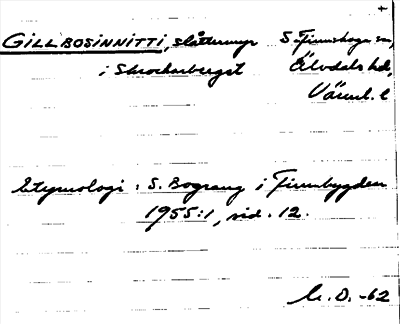 +
GILLBOSINNITTI, slåttermyr S Finnskoga sn,
i Skrockarberget Älvdals hd,
Värml. l
Etymologi: S. Bograng i Finnbygden
1955:1, sid. 12.
-62